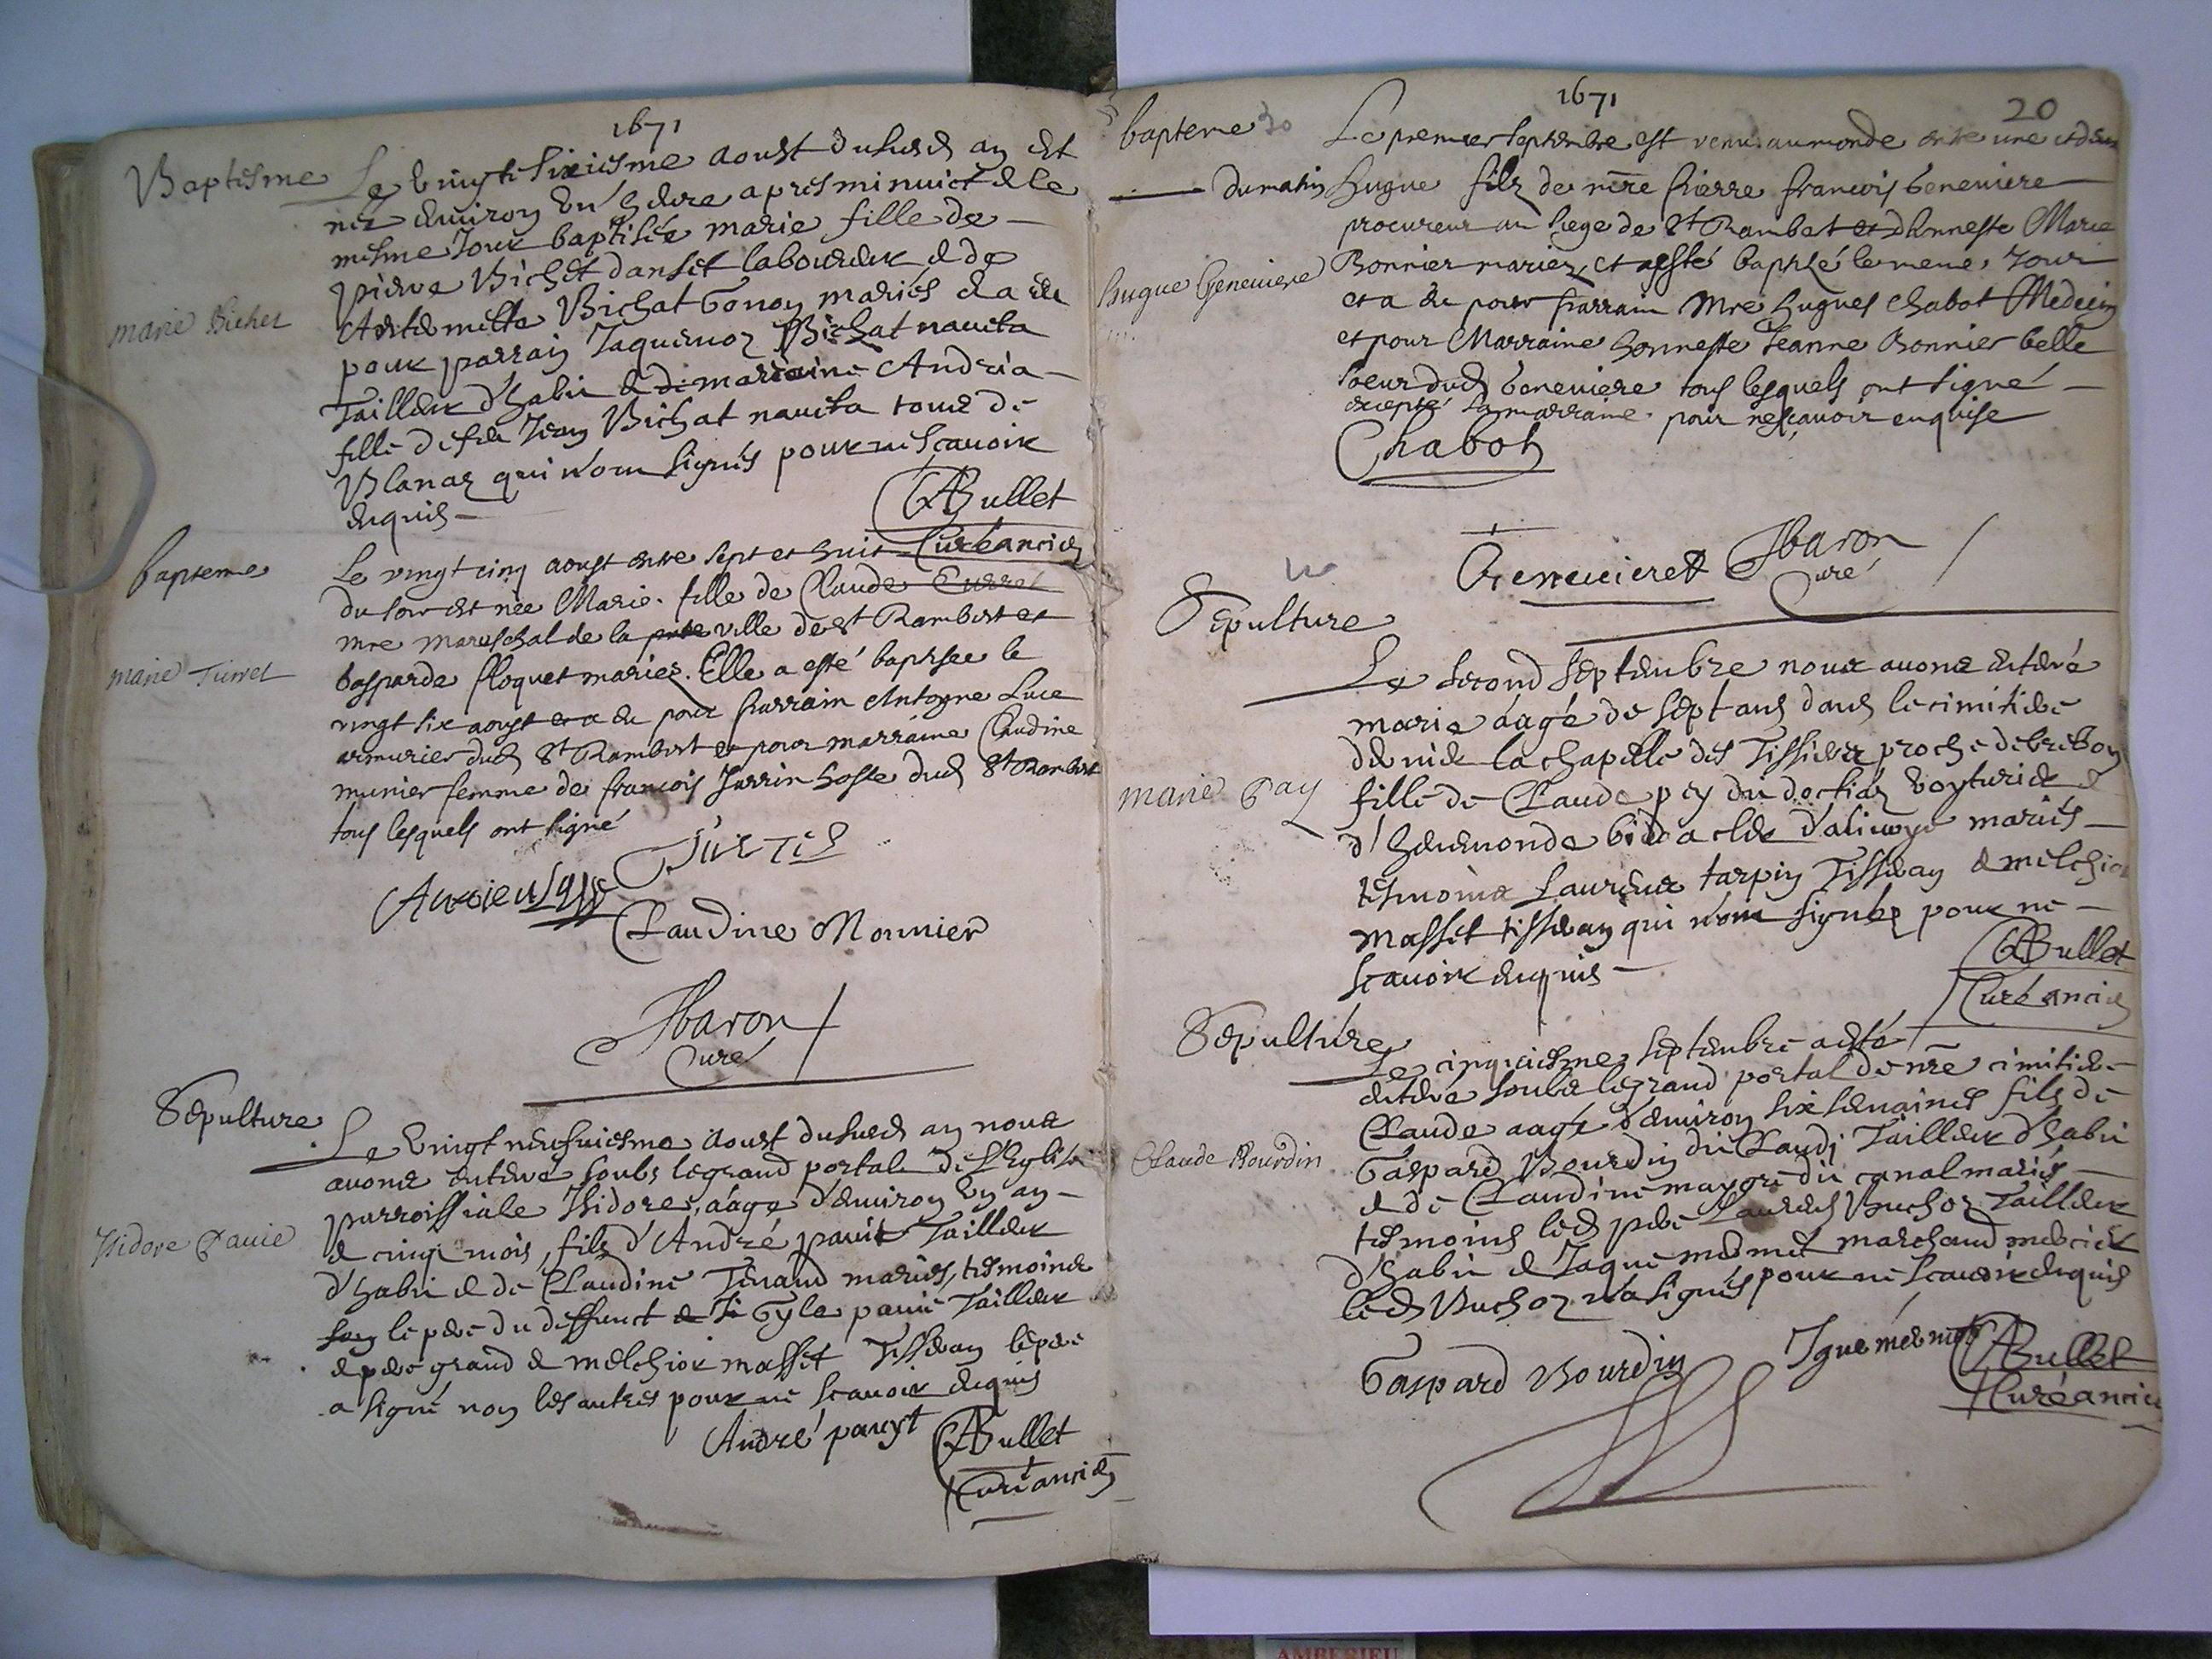 1671
Baptesme Le vingt sixiesme aoust dususd an est
nez environ un' heure apres minuict & le
mesme jour baptisée marie fille de
pierre Bichet danset laboureur & de
marie Bichet
Bichat Gonoy mariés & a eu
pour parrain Jaquemoz Bichat navita
Tailleur d'habit & de marraine Andréa
fille de feu Jean Bichat navita tous de
Blanaz qui n'ont signés pour ne scavoir
enquis
ABullet
Curé ancien
bapteme
Le vingt cinq aoust entre sept et huit
du soir est née Marie fille de Claude Turrel
mre mareschal de la pnte ville de st Rambert et
marie Turrel
gasparde floquet mariez. Elle a esté baptisee le
vingt six aoust et a eu pour parrain Antoyne Luce
armurier dud St Rambert et pour marraine Claudine
munier femme de françois Jarrin hoste dud St Rambert
tous lesquels ont signé
Claudine Monnier
Jbaron
Curé
Sepulture
Le vingt neufviesme aoust dususd an nous
avons enterré soubs le grand portal de l'Eglise
parroissiale Isidore, aagé d'environ un an
Isidore Pavie
& cinq mois, fils d'André pavit Tailleur
d'habit & de Claudine Tenand mariés, tesmoins
le pere du deffunct Gyle pavit Tailleur
& pere grand & melchior masset Tisseran le pere
a signé non les autres pour ne scavoir enquis
André pavyt
ABullet
Curé ancien
1671
20
bapteme 30
Le premier septembre est venu au monde entre une et deux
du matin hugue filz de mre pierre françois Geneviere
procureur au siege de St Rambert et d'honneste Marie
hugue Geneviere
Bonnier mariez, et a esté baptizé le meme jour
et a eu pour parrain Mre hugues Chabot Medecin
et pour Marraine honneste Jeanne Bonnier belle
soeur dud Geneviere tous lesquels ont signé
excepté la marraine pour ne sçavoir enquise
Chabot
Genevieret
Jbaron
Curé
Sepulture
Le second septembre nous avons enterré
marie aagé de sept ans dans le cimitiere
derrier la chapelle des Tissiers proche de
marie Pay
fille de Claude pey du doctiaz voyturier &
d'hermonde mariés
tesmoins Laurens tarpin Tisseran & melchior
masset tisseran qui n'ont signés pour ne
scavoir enquis
ABullet
Curé ancien
Sepulture
Le cinquiesme septembre a esté
enterré soubs le grand portal de nre cimitiere
Claude aagé d'environ six semaines fils de
Claude Bourdin
Gaspard Bourdin du Claudj Tailleur d'habit
& de Claudine maygre du canal mariés
tesmoins led pere Laurens Buchoz Tailleur
d'habit & Jaque mermet marchand mercier
led Buchoz n'a signés pour ne scavoir enquis
Gaspard Bourdin
ABullet
Curé ancien
AMBERIEU